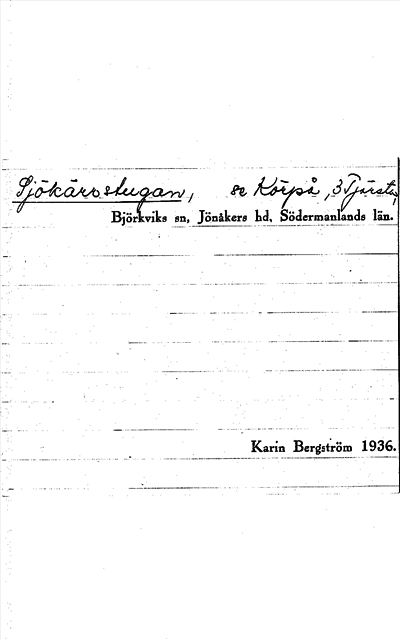 Sjökärrstugan, se Körpå, 3
Björkviks sn, Jönåkers hd, Södermanlands län.
Karin Bergström 1936.